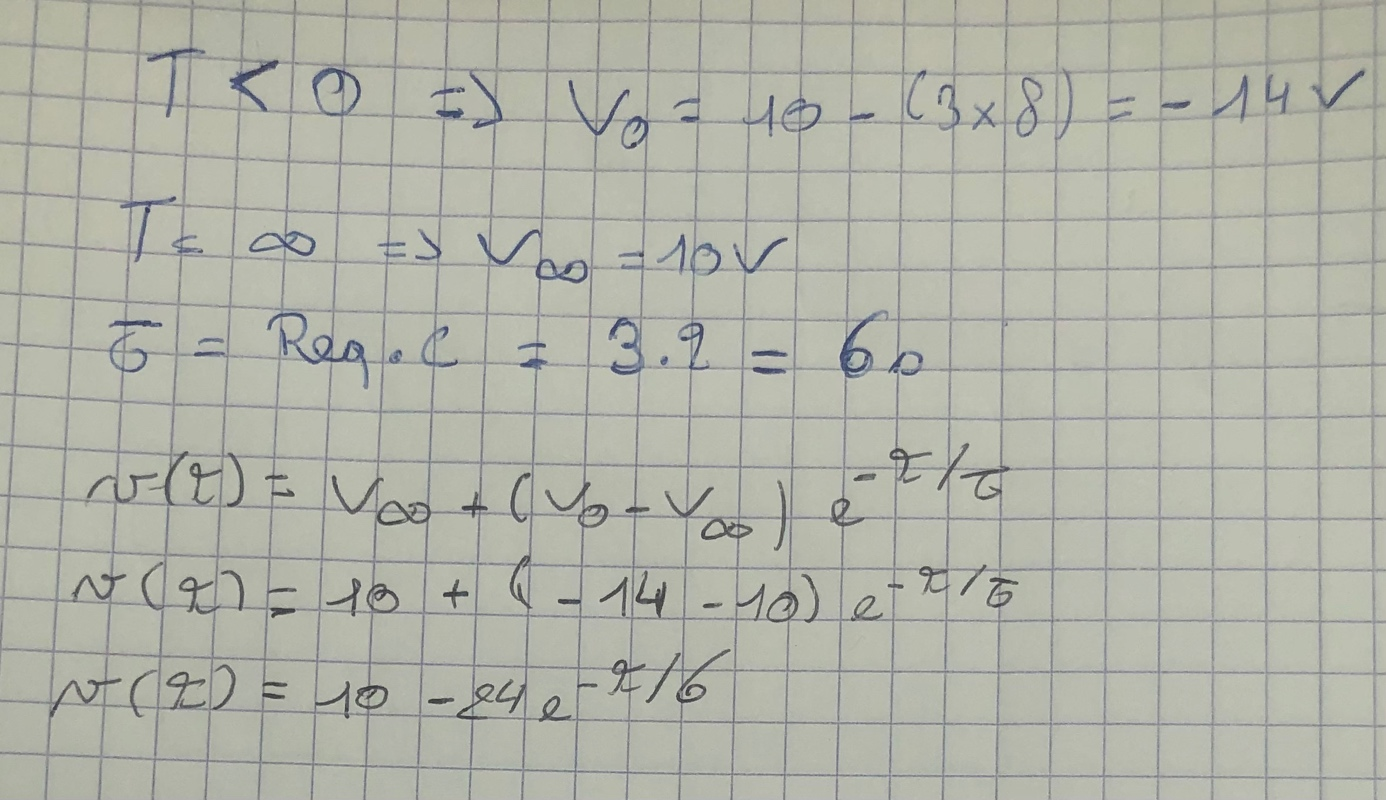 T < 0 => V₀ = 10 - (3x8) = - 14 V
T = ∞ => V∞ = 10 V
τ = Req . C = 3 . 2 = 6 s
v(t) = V∞ + (V₀ - V∞) e^-t/τ
v(t) = 10 + (-14 - 10) e^-t/τ
v(t) = 10 - 24 e^-t/6